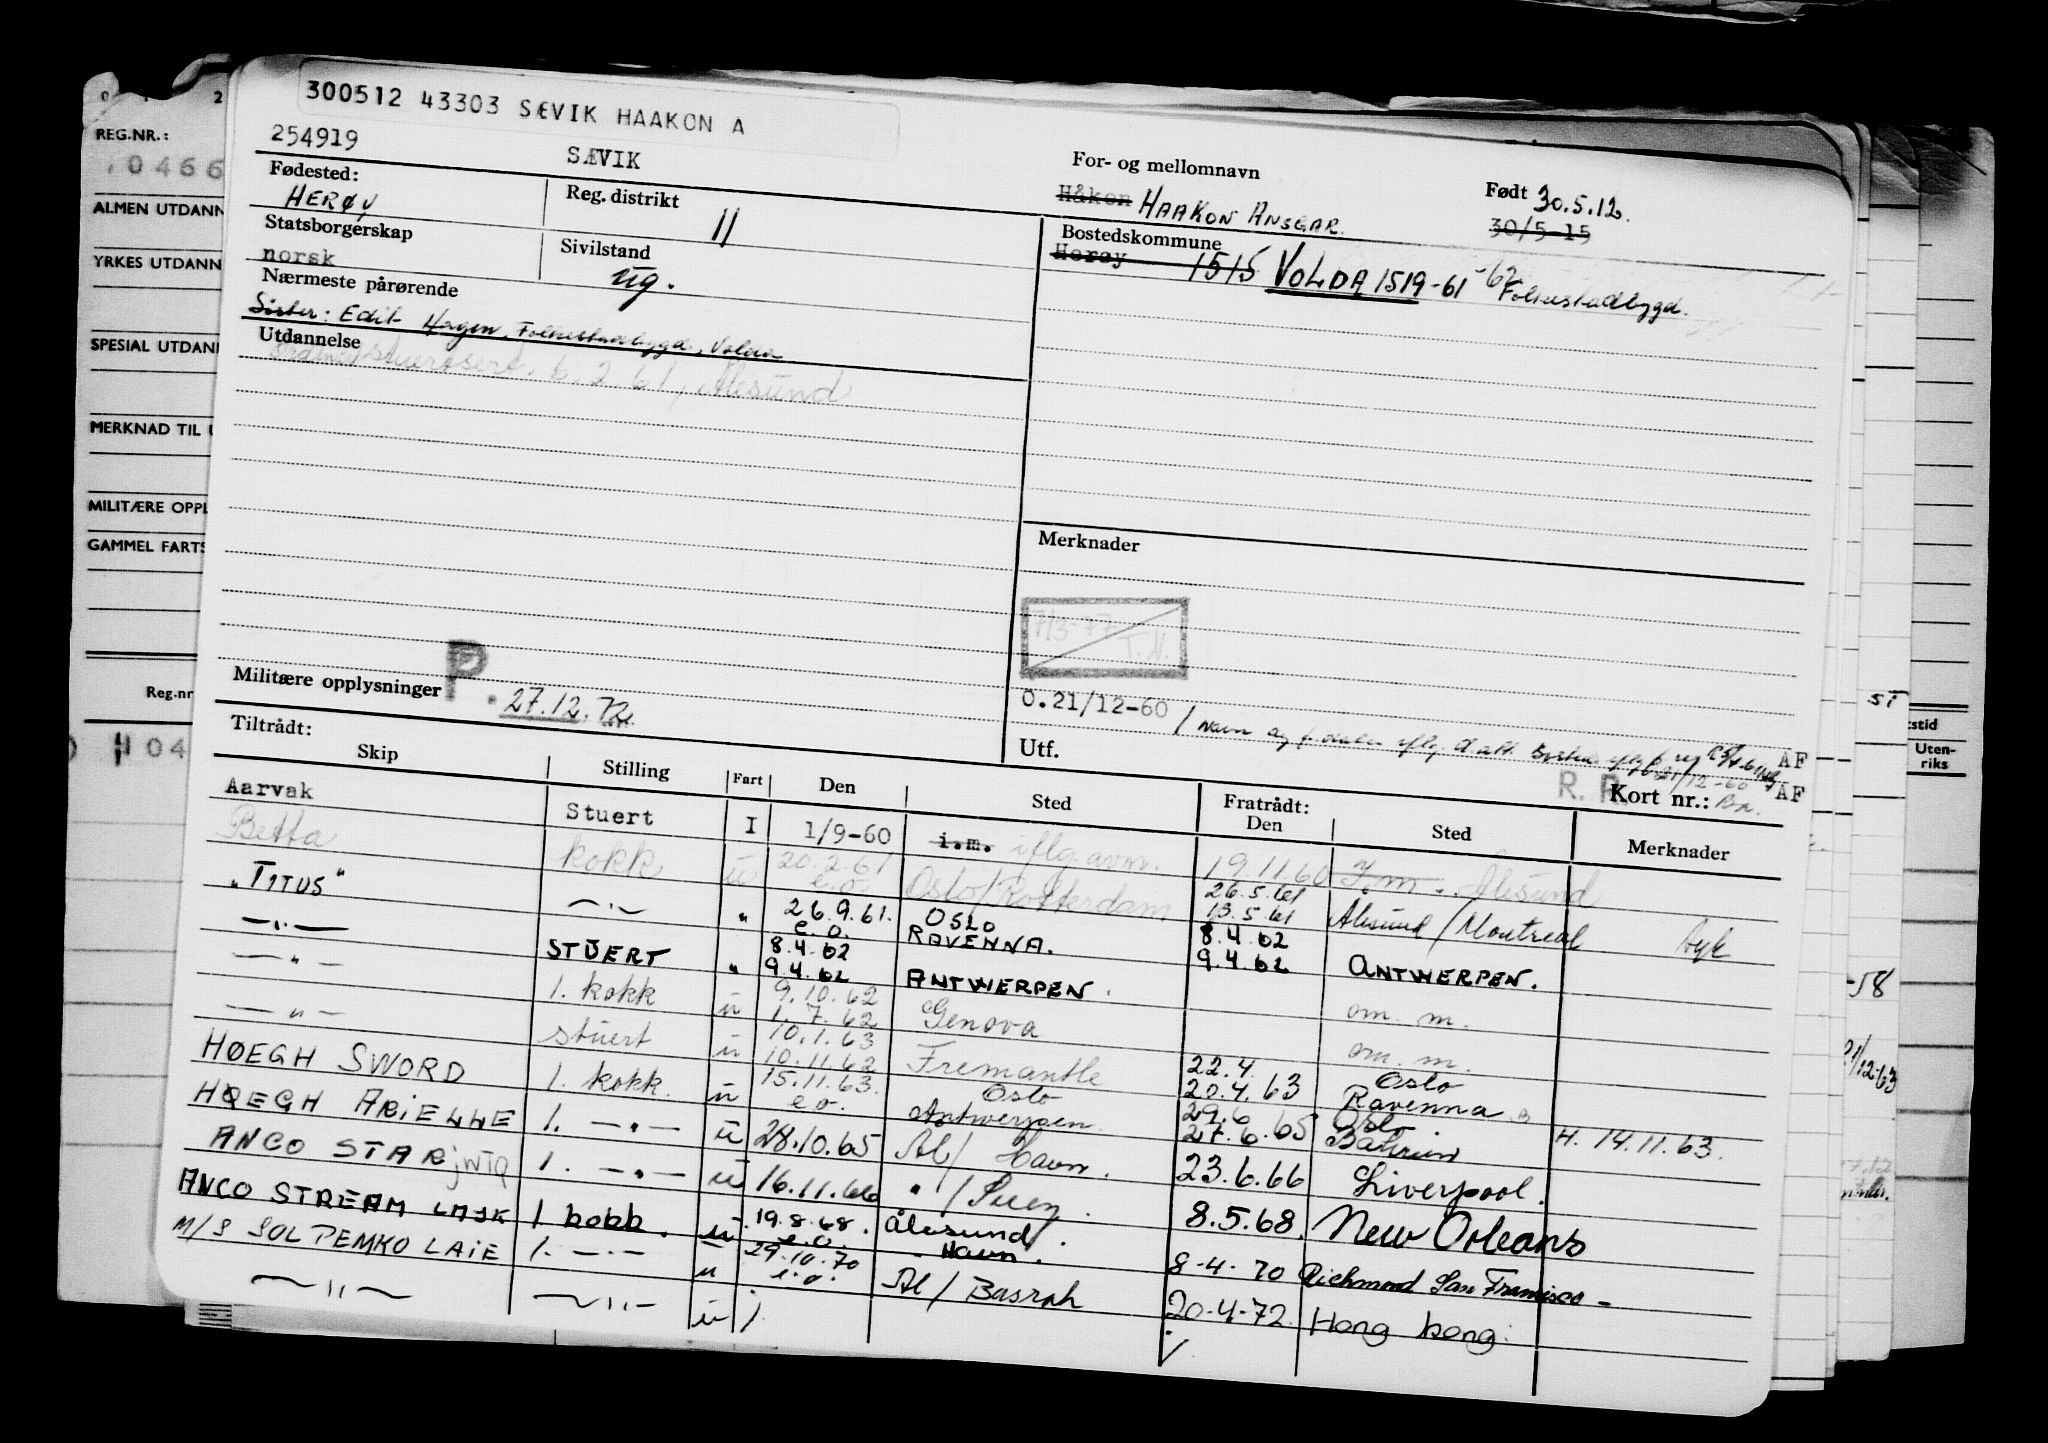 300512 43303 SÆVIK HAAKON A
254919 SÆVIK
For- og mellomnavn
Født 30.5.12.
Håkon HAAKON ANSGAR.
30/5-15
Fødested:
HERØY
Reg. distrikt
11
Statsborgerskap
norsk
Sivilstand
ug.
Bostedskommune
Herøy 1515 VOLDA 1519-61 -62 Folkestadbygd.
Nærmeste pårørende
Sister: Edit Hagen, Folkestadbygd, Volda
Utdannelse
stuertsert. 6.2.61, Ålesund
Merknader
7/3-77
T.N.
Militære opplysninger P. 27.12.72
0.21/12-60 / Navn og f.
AF
AF
Utf.
R. R.
Kort nr.:
Tiltrådt:
Skip Stilling Fart Den Sted Fratrådt: Den Sted Merknader
Aarvak Stuert I 1/9-60 i.m. iflg. avm. 19.11.60 Ålesund
Betta kokk u 20.2.61 e.o. Oslo/Rotterdam 26.5.61 13.5.61 Ålesund/Montreal syk
"TITUS" —"— " 26.9.61. e.o. OSLO RAVENNA. 8.4.62
—"— STUERT " 8.4.62 9.4.62 ANTWERPEN. 9.4.62 ANTWERPEN.
—"— 1. kokk u 9.10.62 1.7.62 Genova om. m.
—"— stuert u 10.1.63 10.11.62 Fremantle om. m.
HØEGH SWORD 1. kokk. u 15.11.63. e.o. Oslo Antwerpen 22.4. 20.4.63 Oslo Ravenna
HØEGH ARIELLE 1. —"— u 28.10.65 Ål/ Havn. 29.6 27.6.65 Oslo Bahrein H. 14.11.63.
ANCO STAR JWTQ 1. —"— u 16.11.66 "/Suez. 23.6.66 Liverpool.
ANCO STREAM LMJK 1. kokk. u 19.8.68. e.o. Ålesund Havn. 8.5.68. New Orleans
M/S SOL PEMKO LAIE 1. —"— u 29.10.70 e.o. Ål/ Basrah 8-4-70 Richmond San Francisco -
—"— —"— u 20-4-72. Hong kong.
REG.NR.:
ALMEN UTDANN
YRKES UTDANN
SPESIAL UTDANN
MERKNAD TIL U
MILITÆRE OPPL
GAMMEL FARTS
Reg.nr
H 04
ST
stid
Uten-
riks
-58
/12-63